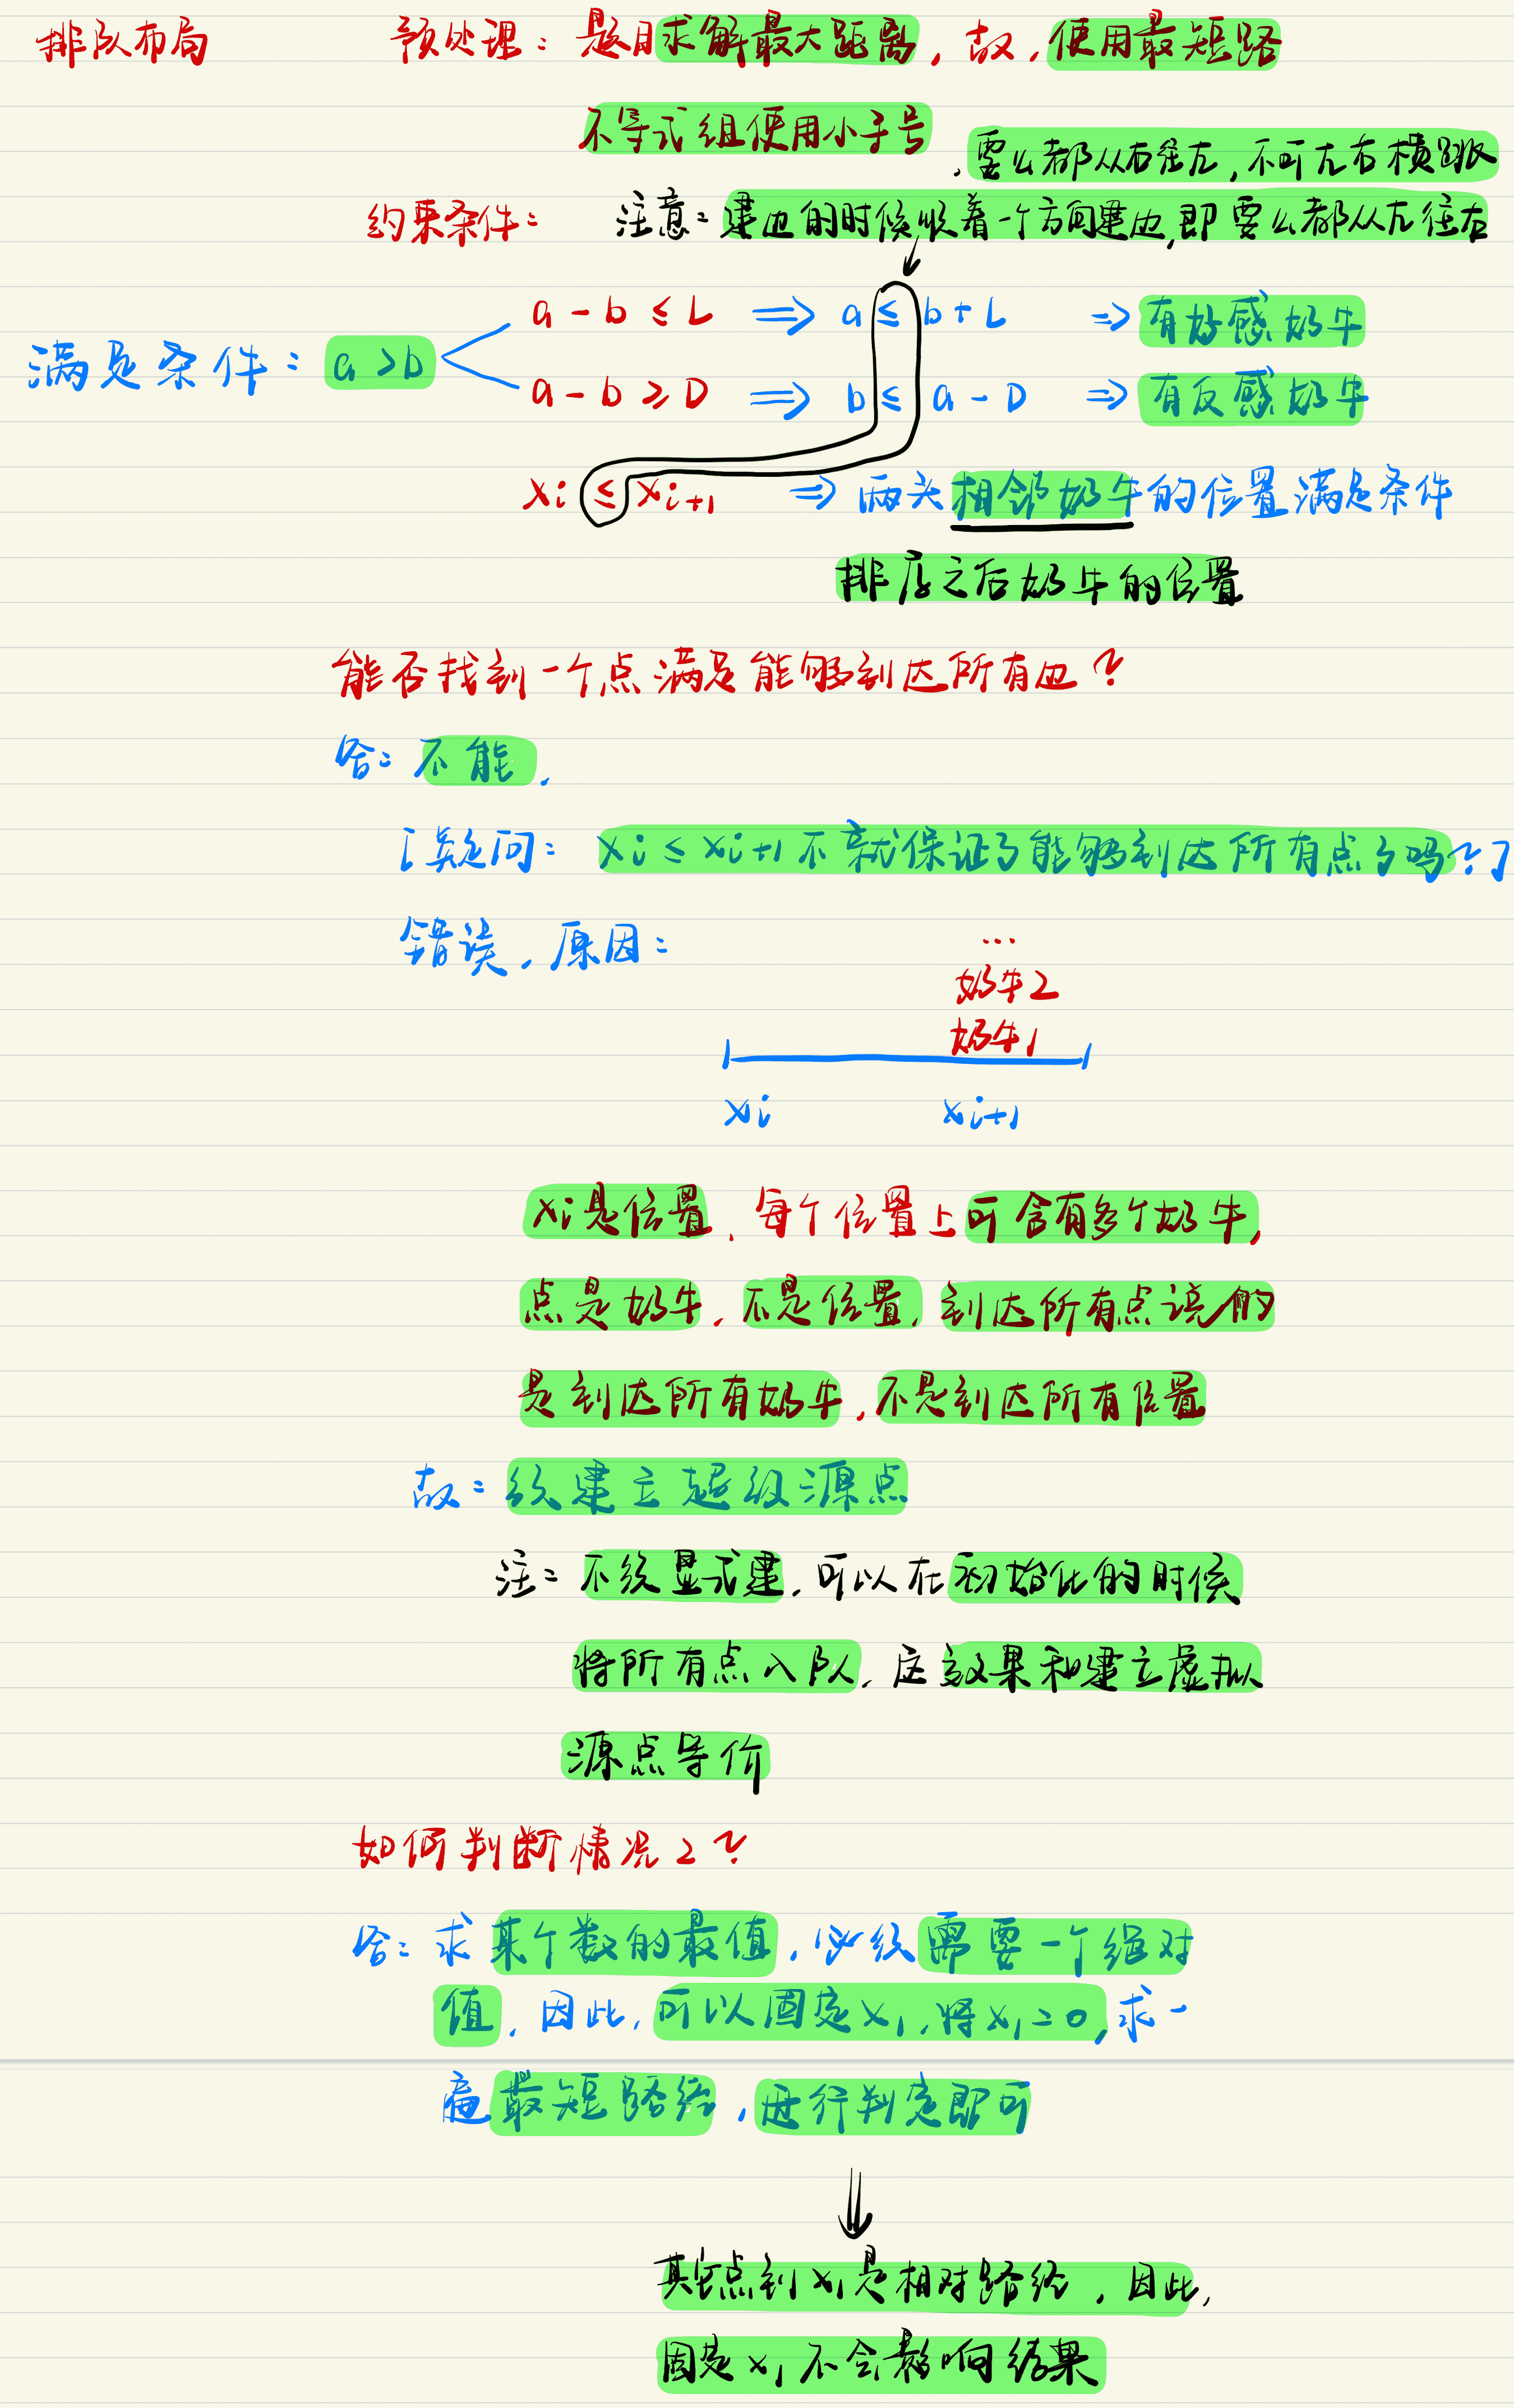 排队布局 预处理：题目求解最大距离，故，使用最短路
不等式组使用小于号
，要么都从右往左，不可左右横跳
约束条件： 注意：建边的时候顺着一个方向建边，即要么都从左往右
a - b ≤ L ⟹ a ≤ b + L ⇒ 有好感奶牛
满足条件：a > b
a - b ≥ D ⟹ b ≤ a - D ⇒ 有反感奶牛
xi ≤ xi+1 ⇒ 两头相邻奶牛的位置满足条件
排序之后奶牛的位置
能否找到一个点满足能够到达所有边？
答：不能．
［疑问：xi ≤ xi+1 不就保证了能够到达所有点了吗？］
错误，原因：
...
奶牛2
奶牛1
xi xi+1
xi是位置，每个位置上可含有多个奶牛，
点是奶牛，不是位置，到达所有点说的
是到达所有奶牛，不是到达所有位置
故：须建立超级源点
注：不须显式建，可以在初始化的时候
将所有点入队，这效果和建立虚拟
源点等价
如何判断情况2？
答：求某个数的最值，必须需要一个绝对
值，因此，可以固定x1，将x1=0，求一
遍最短路径，进行判定即可
其它点到x1是相对路径，因此，
固定x1不会影响结果